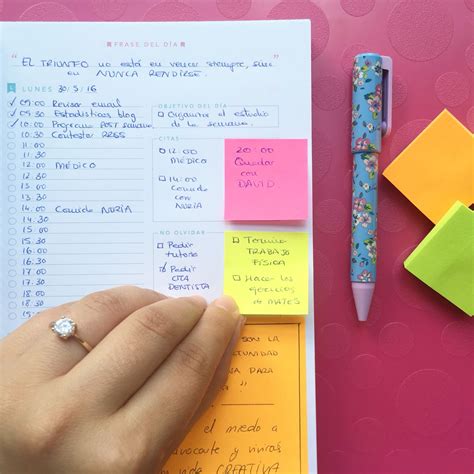 FRASE DEL DÍA
"EL TRIUNFO no está en vencer siempre, sino
en NUNCA RENDIRSE.
LUNES 30/5/16
09:00 Revisar email
09:30 Estadísticas blog
10:00 Programar POST semana
10:30 Contestar RRSS
11:00
11:30
12:00 MÉDICO
12:30
13:00
13:30
14:00 Comida NURIA
14:30
15:00
15:30
16:00
16:30
17:00
17:30
18:00
OBJETIVO DEL DÍA
Organizar el estudio
de la semana.
CITAS
12:00
MÉDICO
14:00
Comida
con
NURIA
20:00
Quedar
con
DAVID
NO OLVIDAR
Pedir
tutoría
Pedir
CITA
DENTISTA
Terminar
TRABAJO
FÍSICA
Hacer los
ejercicios
de MATES
SON LA
OPORTUNIDAD
PARA
el miedo a
y vivirás
CREATIVA